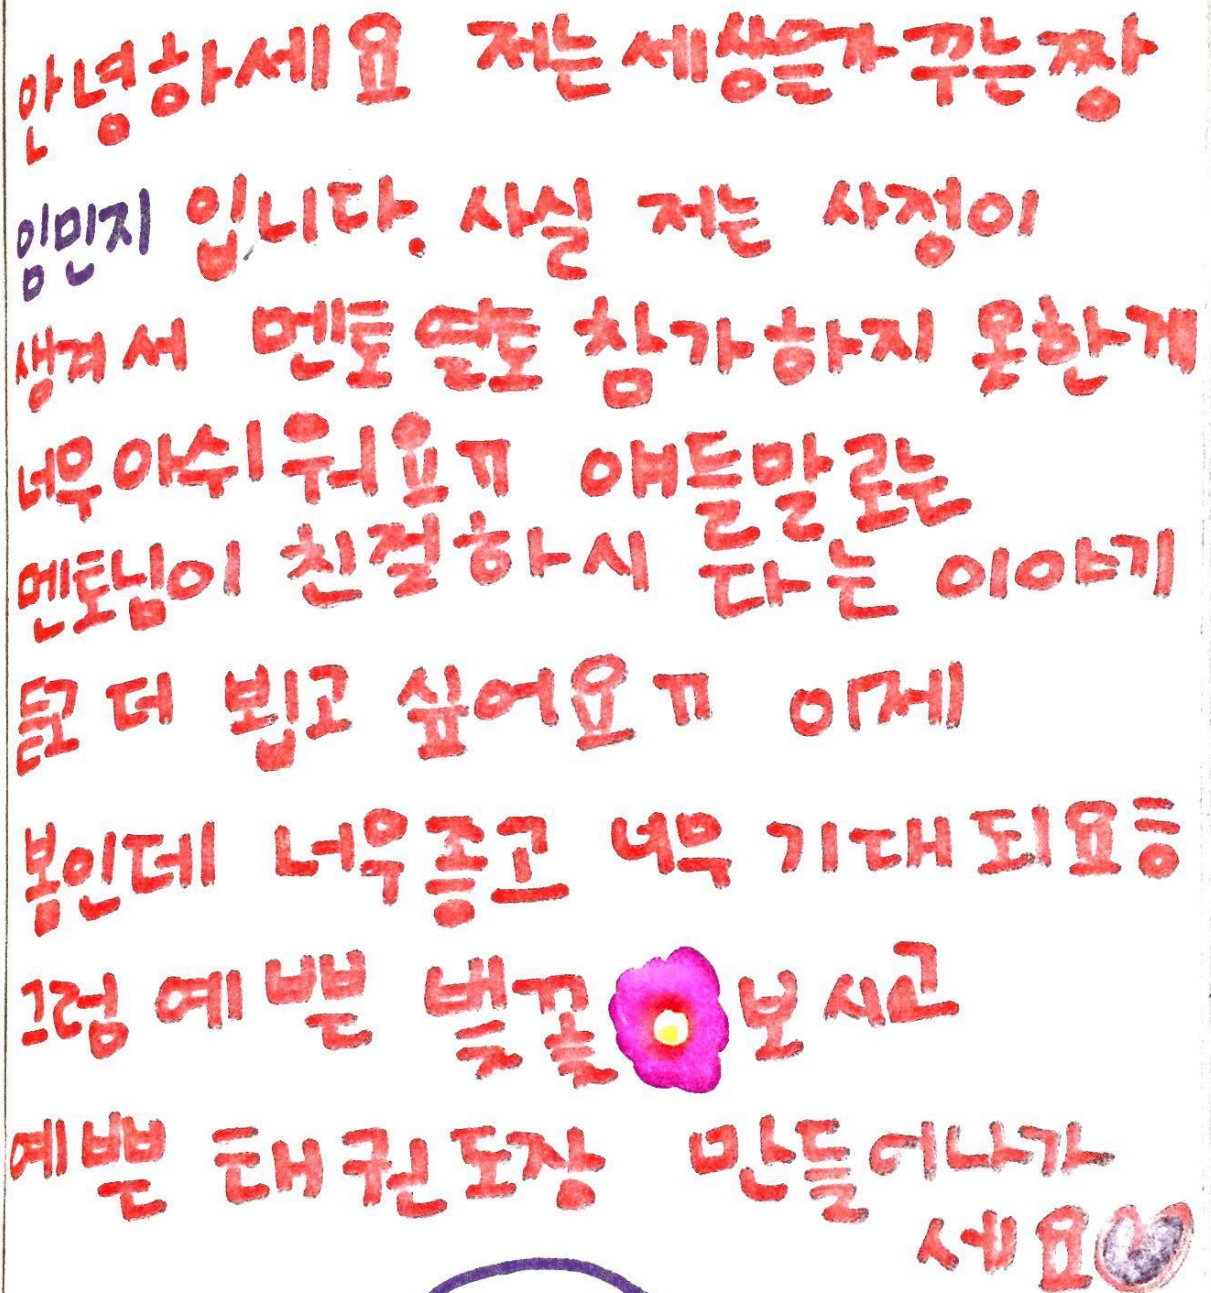 안녕하세요 저는 세상을 가꾸는 짱
임민지 입니다. 사실 저는 사정이
생겨서 멘토 열토 참가하지 못한게
너무 아쉬워요ㅠ 얘들말로는
멘토님이 친절하시다는 이야기
듣고 더 뵙고 싶어요ㅠ 이제
봄인데 너무 좋고 너무 기대되요ㅎ
그럼 예쁜 벚꽃 보시고
예쁜 태권도장 만들어나가
세요